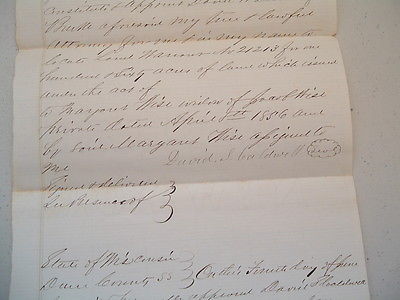 Constitute & appoint
aforesaid my true & lawful
Attorney for me & in my name to
locate Land Warrant No 21213 for one
hundred & sixty acres of land which issued
under the act of
to Margaret Wise widow of Jacob Wise
private dated April 1st 1856 and
by said Margaret Wise assigned to
me
David S. Caldwell (Seal)
Signed & delivered
In Presence of
State of Wisconsin
Dane County SS On this Tenth day of June
appeared David S Caldwell